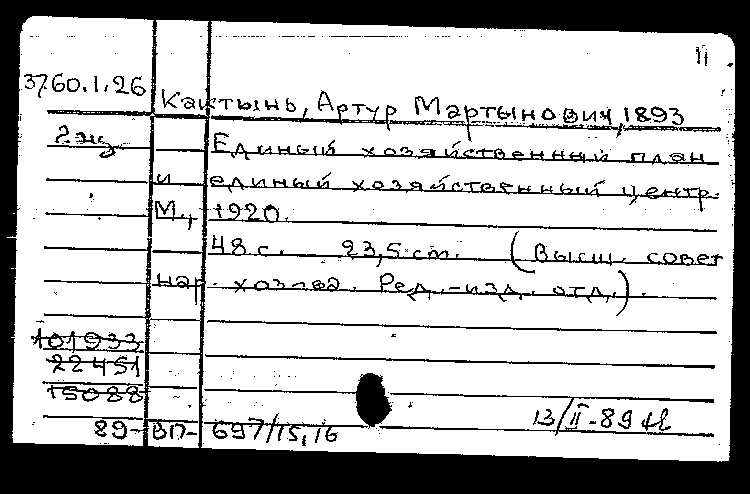 II
3760.1.26 Кактынь, Артур Мартынович, 1893
2 экз Единый хозяйственный план
и единый хозяйственный центр.
М., 1920.
48 с. 23,5 cm. (Высш. совет
нар. хоз-ва. Ред.-изд. отд.).
101933
22451
15088
89-ВП-697/15,16
13/II-89